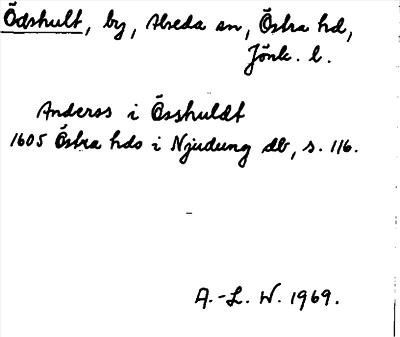 Ödshult, by, Alseda sn, Östra hd,
Jönk. l.
Anderss i Össhuldt
1605 Östra hds i Njudung db, s. 116.
A.-L. W. 1969.